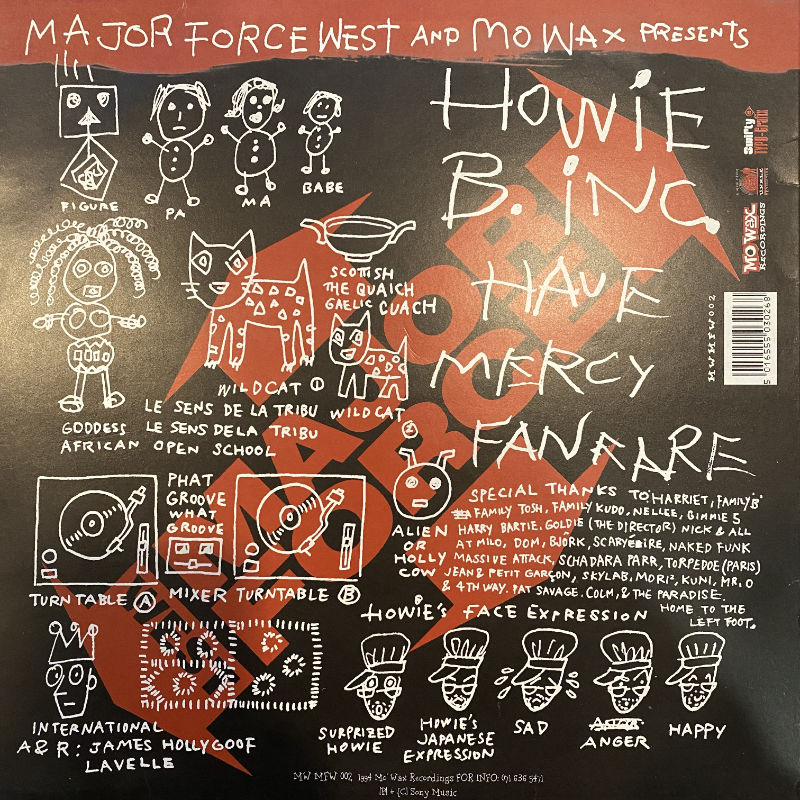 MAJOR FORCE WEST AND MO WAX PRESENTS
HOWIE
B. iNC.
HAVE
MERCY
FANFARE
FIGURE
PA
MA
BABE
SCOTISH
THE QUAICH
GAELIC CUACH
WILDCAT ①
LE SENS DE LA TRIBU
WILDCAT
②
GODDESS
LE SENS DE LA TRIBU
AFRICAN OPEN SCHOOL
MAJOR
FORCE
Swifty
TYPO-GRAFIX
MO WAX
RECORDINGS
MWMFW002
5 016555 030268
PHAT
GROOVE
WHAT
GROOVE
TURNTABLE Ⓐ
MIXER
TURNTABLE Ⓑ
ALIEN
OR
HOLLY
COW
SPECIAL THANKS TO HARRIET, FAMILY 'B'
FAMILY TOSH, FAMILY KUDO, NELLEE, GIMMIE 5
HARRY BARTIE. GOLDIE (THE DIRECTOR) NICK & ALL
AT MILO, DOM, BJORK, SCARYEIRE, NAKED FUNK
MASSIVE ATTACK, SCHADARA PARR, TORPEDOE (PARIS)
JEAN & PETIT GARÇON, SKYLAB, MORI², KUNI, MR. O
& 4TH WAY. PAT SAVAGE. COLM, & THE PARADISE.
HOME TO THE
LEFT FOOT.
HOWiE'S FACE EXPRESSION
SURPRIZED
HOWIE
HOWIE'S
JAPANESE
EXPRESSION
SAD
ANGER
HAPPY
INTERNATIONAL
A&R: JAMES HOLLYGOOF
LAVELLE
MW MFW 002, 1994 Mo' Wax Recordings FOR INFO: 071 636 5411
(P) + (C) Sony Music